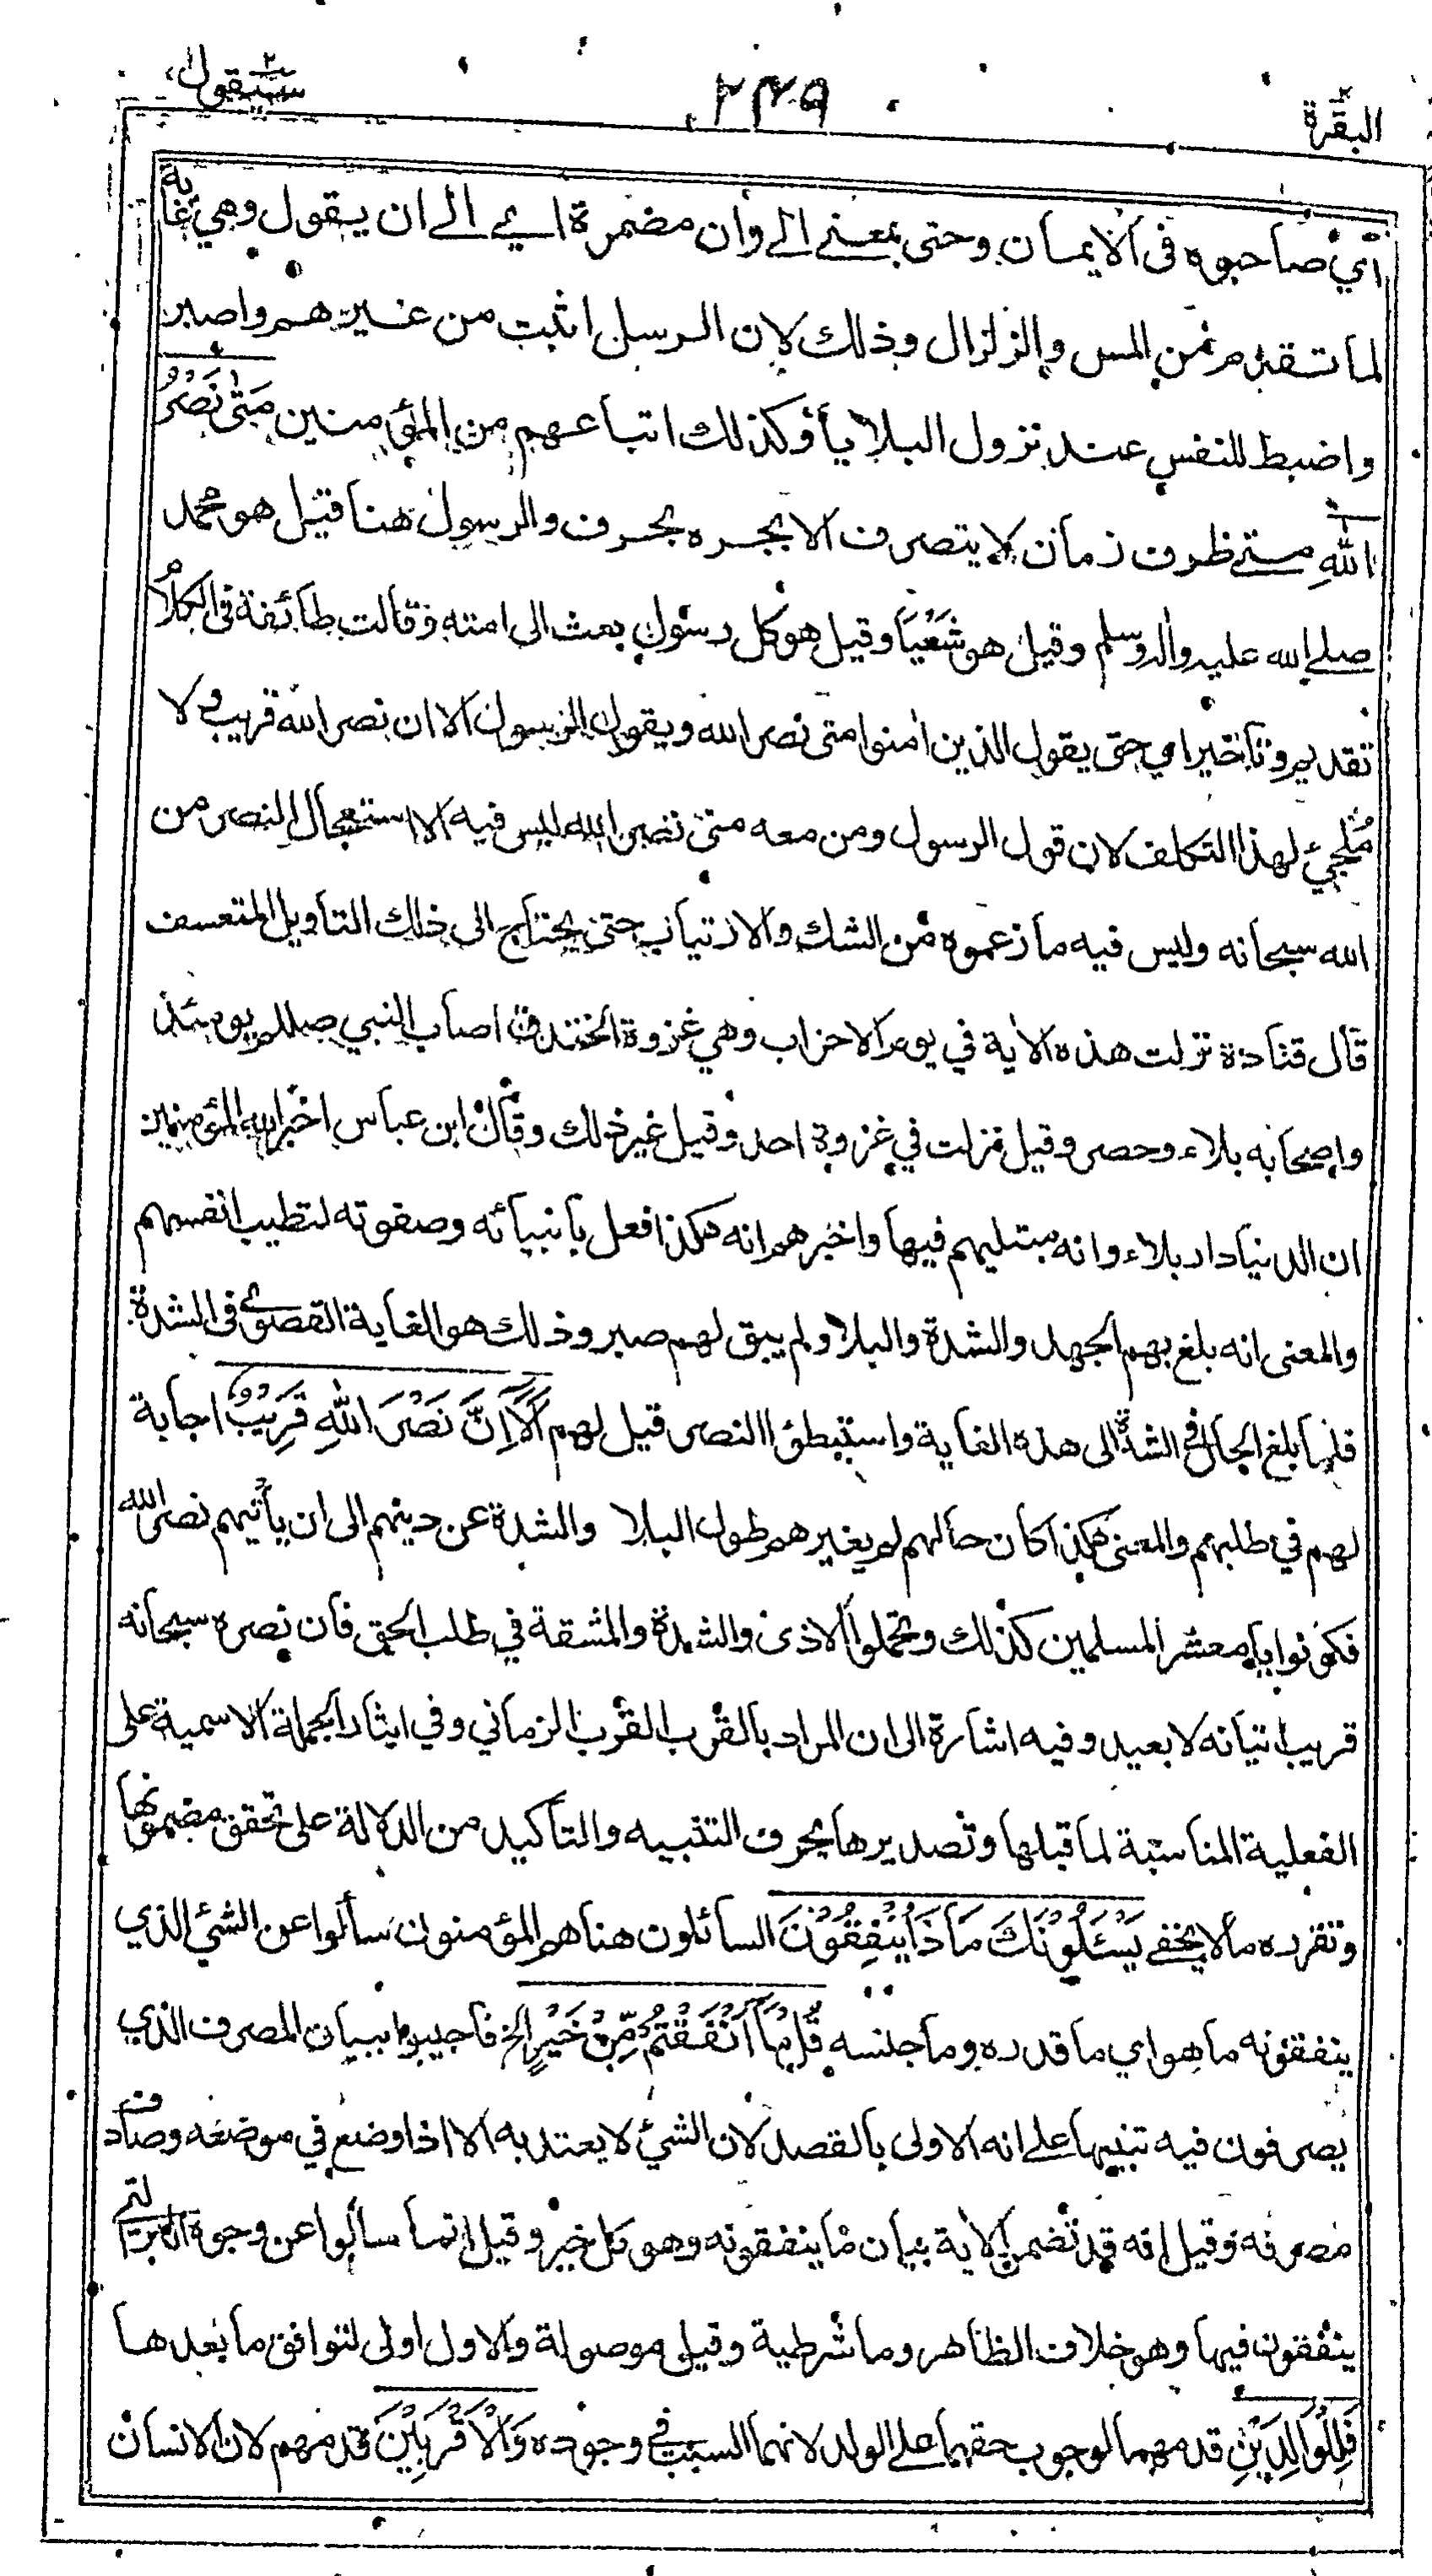 البقرة ٢ ٢٦٩ سيقول ٢
اي صاحبوه في الايمان وحتى بمعنى الى وان مضمرة اي الى ان يقول وهي غاية
لما تقدم من المس والزلزال وذلك لان الرسل اثبت من غيرهم واصبر
واضبط للنفس عند نزول البلايا وكذلك اتباعهم من المؤمنين مَتٰى نَصْرُ
اللهِ متى ظرف زمان لا يتصرف الا بجره بحرف والرسول هنا قيل هو محمد
صلى الله عليه واله وسلم وقيل هو شَعْيَا وقيل هو كل رسول بعث الى امته وقالت طائفة في الكلام
تقديم وتاخير اي حتى يقول الذين امنوا متى نصر الله ويقول الرسول الا ان نصر الله قريب ولا
مُلجئ لهذا التكلف لان قول الرسول ومن معه متى نصر الله ليس فيه الا استعجال النصر من
الله سبحانه وليس فيه ما زعموه من الشك والارتياب حتى يحتاج الى ذلك التاويل المتعسف
قال قتادة نزلت هذه الاية في يوم الاحزاب وهي غزوة الخندق اصاب النبي صللم يومئذ
واصحابه بلاء وحصر وقيل نزلت في غزوة احد وقيل غير ذلك وقال ابن عباس اخبر الله المؤمنين
ان الدنيا دار بلاء وانه مبتليهم فيها واخبرهم انه هكذا فعل بانبيائه وصفوته لتطيب انفسهم
والمعنى انه بلغ بهم الجهد والشدة والبلا ولم يبق لهم صبر وذلك هو الغاية القصوى في الشدة
فلما بلغ الحال في الشدة الى هذه الغاية واستبطئ االنصر قيل لهم اَلَآ اِنَّ نَصْرَ اللهِ قَرِيْبٌ اجابة
لهم في طلبهم والمعنى هكذا كان حالهم لم يغيرهم طول البلا والشدة عن دينهم الى ان يأتيهم نصر الله
فكونوا يا معشر المسلمين كذلك وتحملوا الاذى والشدة والمشقة في طلب الحق فان نصره سبحانه
قريب اتيانه لا بعيد وفيه اشارة الى ان المراد بالقرب القرب الزماني وفي ايثار الجملة الاسمية على
الفعلية المناسبة لما قبلها وتصديرها بحرف التنبيه والتأكيد من الدلالة على تحقق مضمونها
وتقرره ما لا يخفى يَسْئَلُوْنَكَ مَا ذَا يُنْفِقُوْنَ السائلون هنا هم المؤمنون سألوا عن الشئ الذي
ينفقونه ما هو اي ما قدره وما جنسه قُلْ مَآ اَنْفَقْتُمْ مِّنْ خَيْرٍ الخ فاجيبوا ببيان المصرف الذي
يصرفون فيه تنبيها على انه الاولى بالقصد لان الشئ لا يعتد به الا اذا وضع في موضعه وصادف
مصرفه وقيل انه قد تضمن الاية بيان ما ينفقونه وهو كل خير وقيل انما سألوا عن وجوه البر التي
ينفقون فيها وهو خلاف الظاهر وما شرطية وقيل موصولة والاول اولى لتوافق ما بعدها
فَلِلْوَالِدَيْنِ قدمهما لوجوب حقهما على الولد لانهما السبب في وجوده وَالْاَقْرَبِيْنَ قدمهم لان الانسان